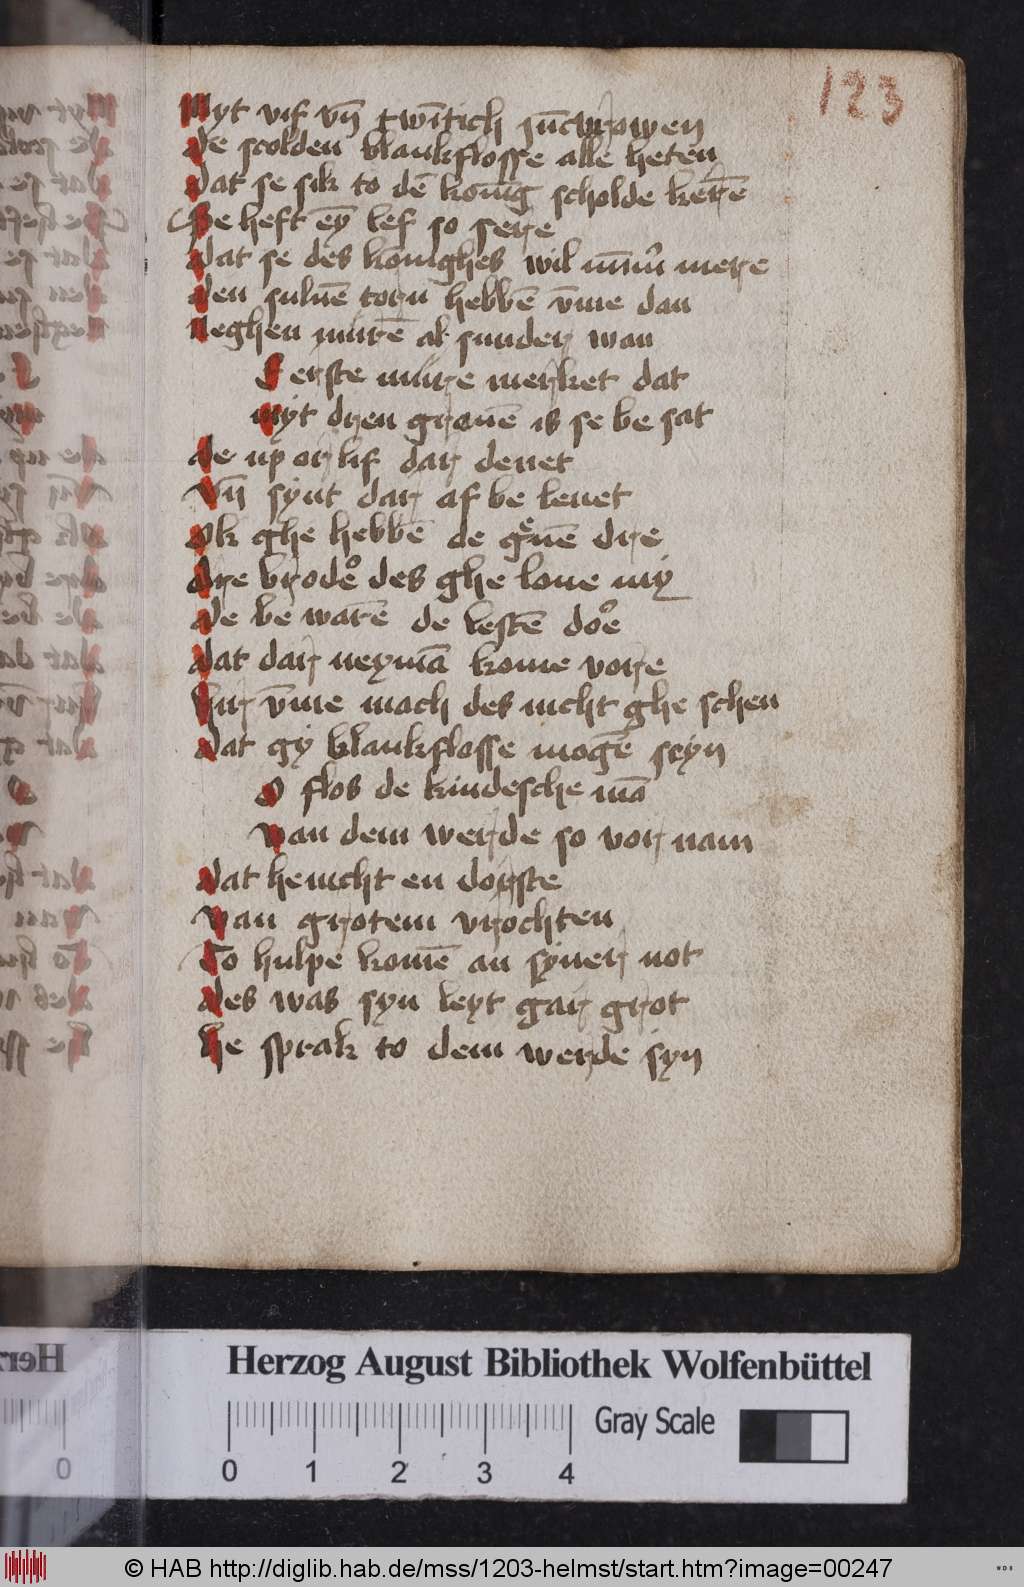 123
Myt vif vn̄ twītich jūcvrowen
de scolden blankflosse alle heten
dat se sik to dē konīg scholde kerē
Se heft eȳ lef so sere
dat se des konighes wil nūm̄ mere
den suluē torn hebbē v̄me dan
Neghen murē al sunder wan
De erste mure merket dat
myt dren grauē is se be sat
de up or lif dar deuet
Vn̄ synt dar af be leuet
Ok ghe hebbē de g̊uē dre
dre brodē des ghe loue my
de be warē de lestē doe
dat dar neymā kome vore
hir v̄me mach des nicht ghe schen
dat gy blankflosse mogē seyn
O flos de kindesche mā
van dem werde so vor nam
dat he nicht en dorste
van grotem vrochten
To hulpe komē an syner not
des was syn leyt gar grot
he sprak to dem werde syn
Herzog August Bibliothek Wolfenbüttel
Gray Scale
0 1 2 3 4
0
© HAB http://diglib.hab.de/mss/1203-helmst/start.htm?image=00247